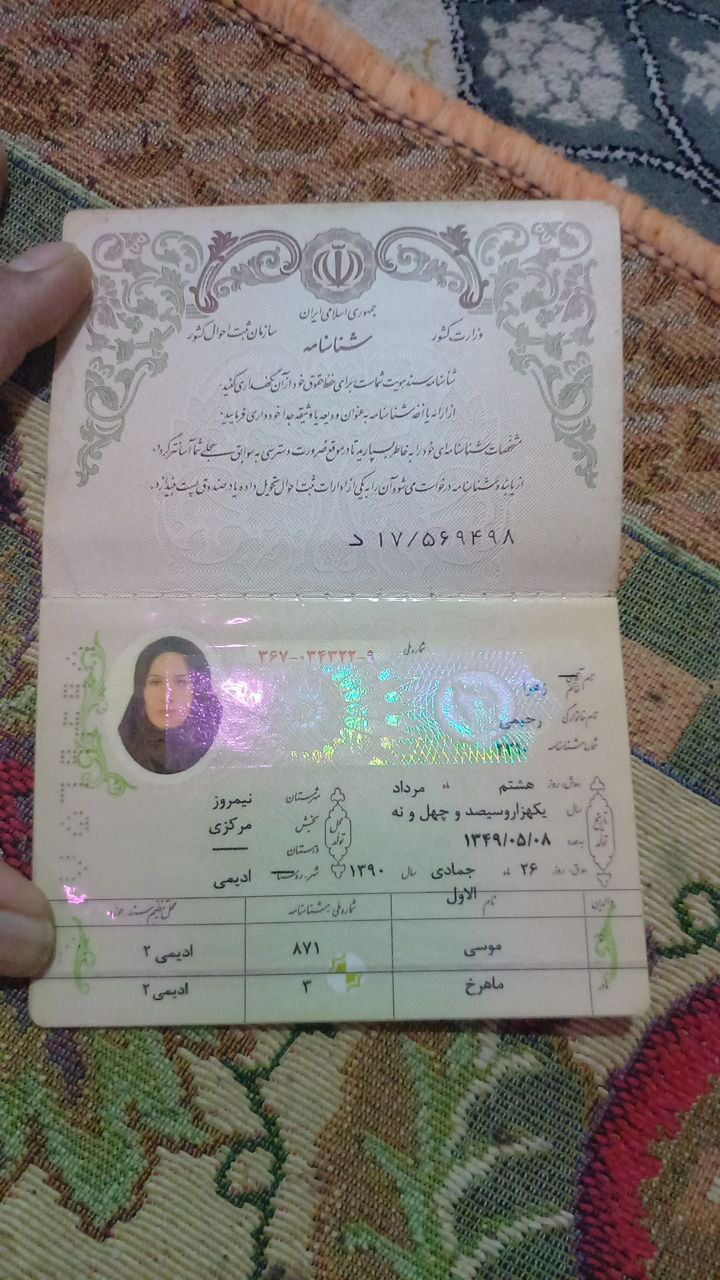 جمهوری اسلامی ایران
وزارت کشور
سازمان ثبت احوال کشور
شناسنامه
شناسنامه سند هویت شماست برای حفظ حقوق خود از آن نگهداری کنید.
از ارائه یا اخذ شناسنامه به عنوان ودیعه یا وثیقه جدا خودداری فرمایید.
مشخصات شناسنامه‌ای خود را به خاطر بسپارید تا در موقع ضرورت دسترسی به سوابق سجلی شما آسانتر گردد.
از یابنده شناسنامه درخواست می‌شود آن را به یکی از ادارات ثبت احوال تحویل داده یا در صندوق پست بیندازد.
د ۱۷/۵۶۹۴۹۸
شماره ملی ۳۶۷-۰۳۴۳۲۲-۹
نام آقای خانم زهرا
نام خانوادگی رحیمی
شماره شناسنامه
تاریخ تولد
روز هشتم ماه مرداد
سال یکهزاروسیصد و چهل و نه
۱۳۴۹/۰۵/۰۸
روز ۲۶ ماه جمادی الاول سال ۱۳۹۰
محل تولد
شهرستان نیمروز
بخش مرکزی
دهستان —
شهر روستا ادیمی
والدین نام شماره ملی/شناسنامه محل تنظیم سند/حوزه
موسی ۸۷۱ ادیمی ۲
مادر ماهرخ ۳ ادیمی ۲